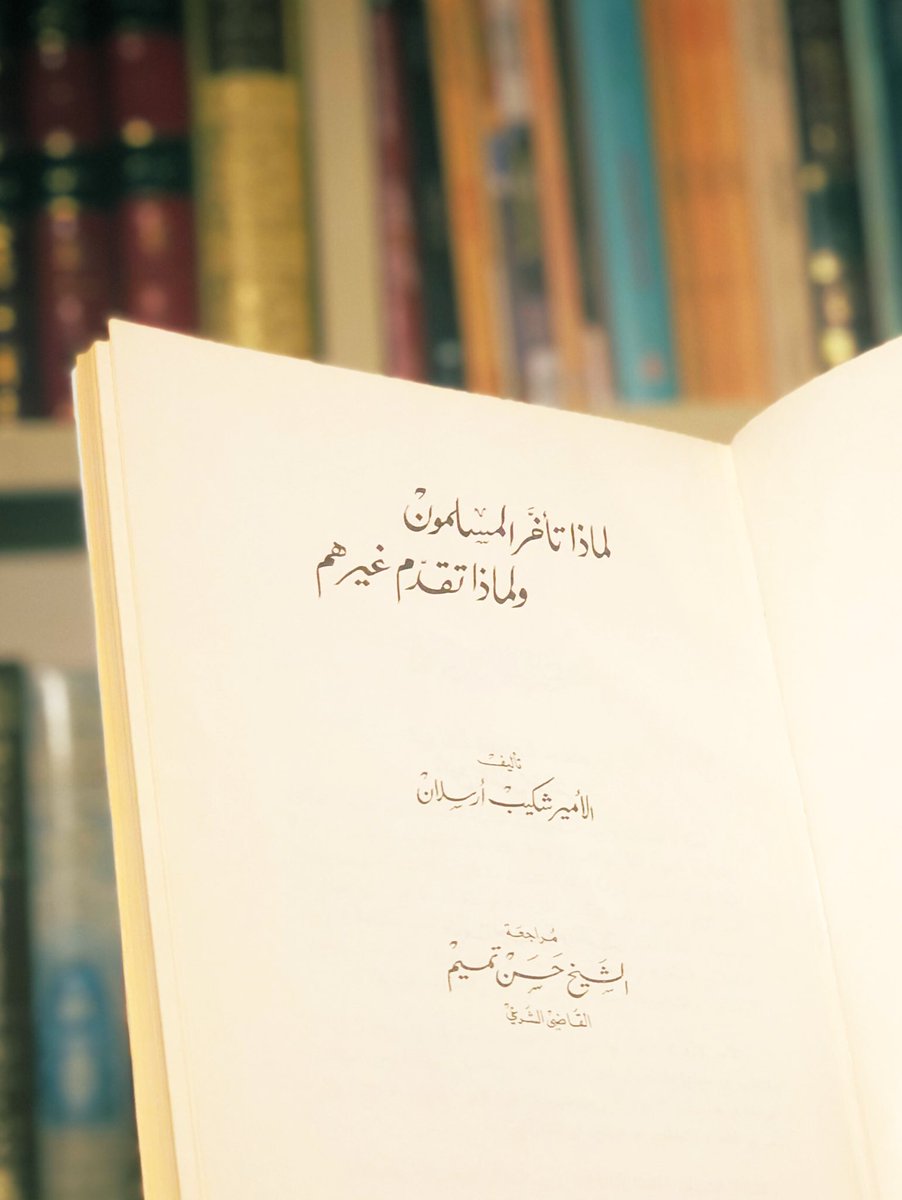 لماذا تأخَّر المسلمونْ
ولماذا تقدّم غيرهم
تأليفْ
الأمير شكيبْ أرسلانْ
مُراجعَة
الشَيخ حَسَنْ تميمْ
القَاضي الشَرعيْ